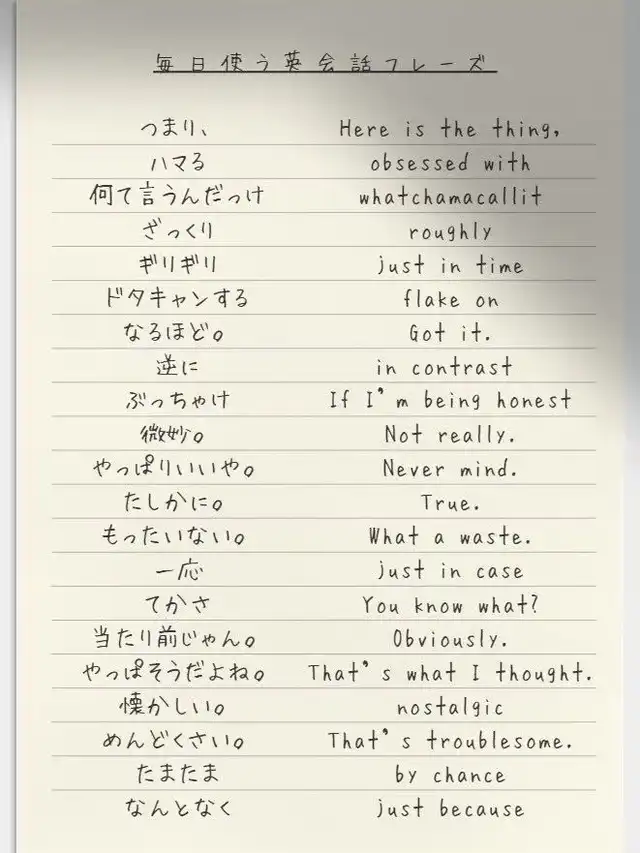 毎日使う英会話フレーズ
つまり、 Here is the thing,
ハマる obsessed with
何て言うんだっけ whatchamacallit
ざっくり roughly
ギリギリ just in time
ドタキャンする flake on
なるほど。 Got it.
逆に in contrast
ぶっちゃけ If I'm being honest
微妙。 Not really.
やっぱりいいや。 Never mind.
たしかに。 True.
もったいない。 What a waste.
一応 just in case
てかさ You know what?
当たり前じゃん。 Obviously.
やっぱそうだよね。 That's what I thought.
懐かしい。 nostalgic
めんどくさい。 That's troublesome.
たまたま by chance
なんとなく just because